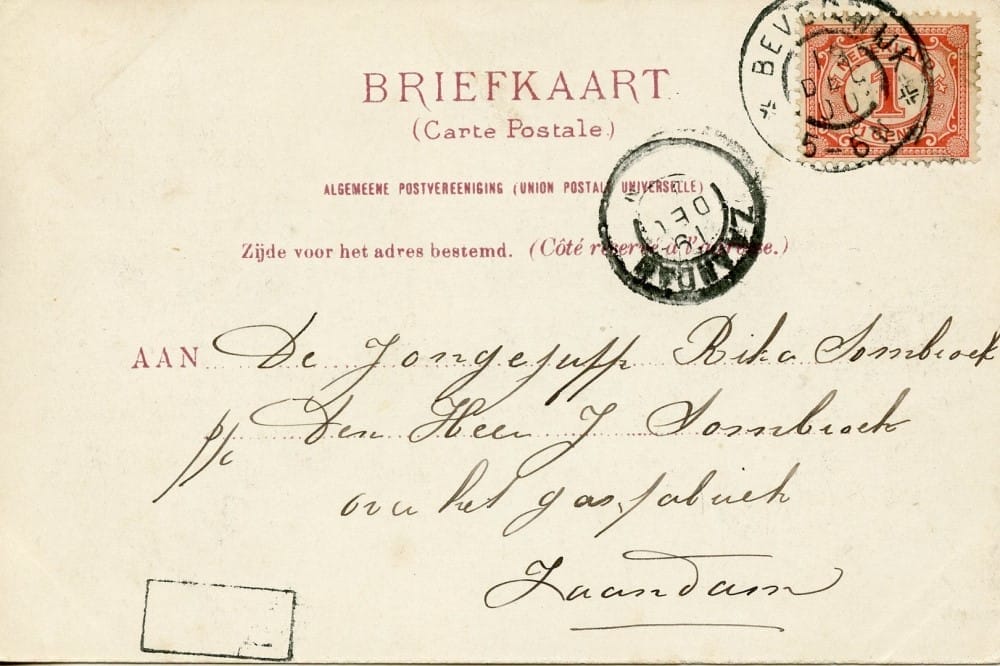 BRIEFKAART
(Carte Postale.)
ALGEMEENE POSTVEREENIGING (UNION POSTALE UNIVERSELLE)
Zijde voor het adres bestemd. (Côté réservé à l'adresse.)
BEVERWIJK
DEC
5-6
NEDERLAND
1
1 CENT
ZAANDAM
19
DEC
AAN De Jongejuffr Rika Sombroek
p/a Den Heer J Sombroek
over het gasfabriek
Zaandam